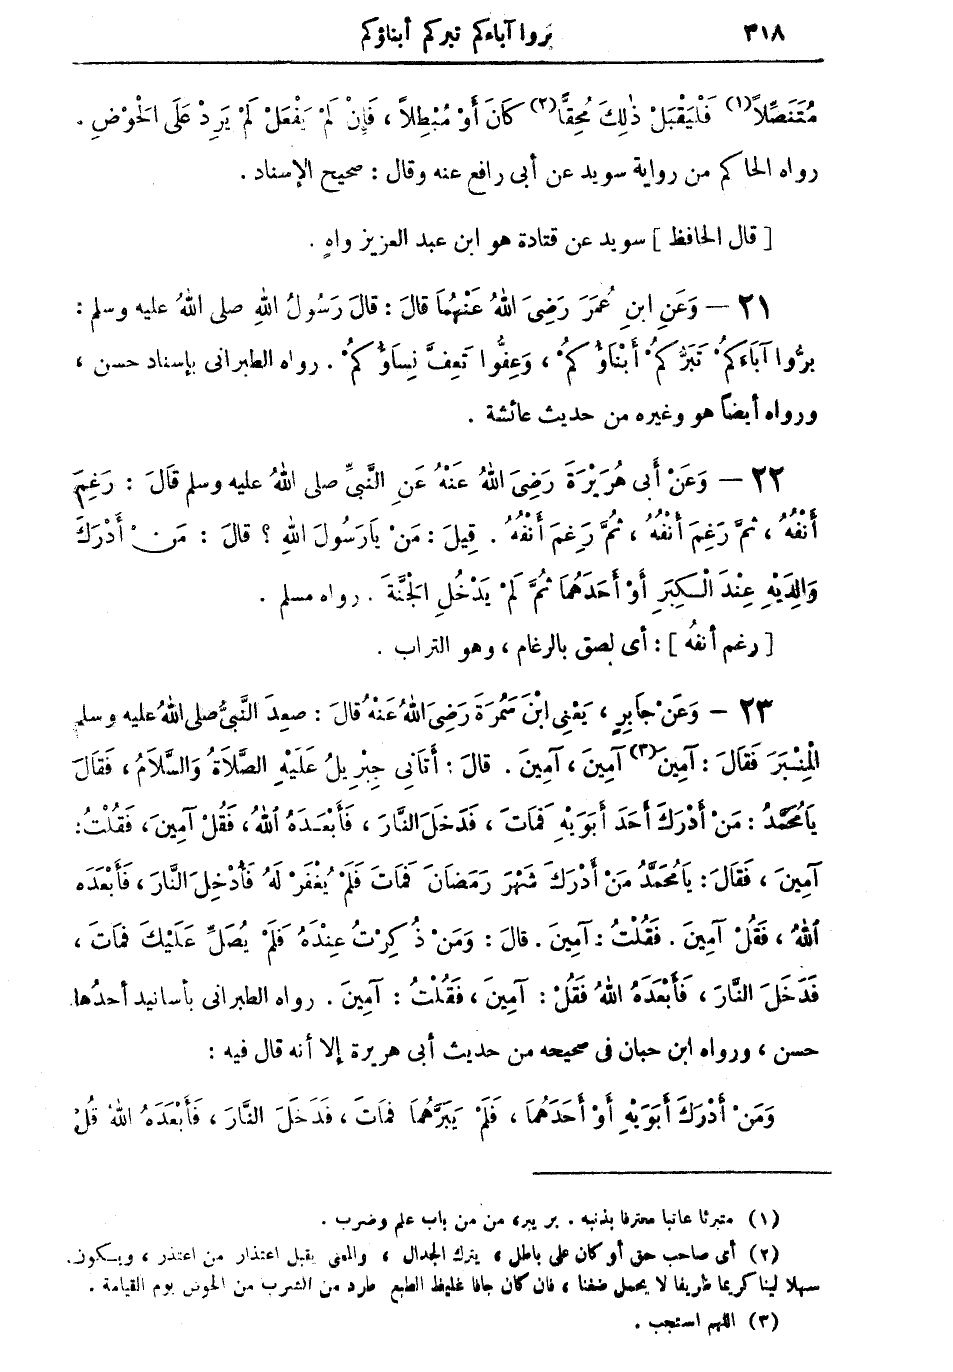 ٣١٨ بروا آباءكم تبركم أبناؤكم
مُتَنَصِّلاً(١) فَلْيَقْبَلْ ذٰلِكَ مُحِقًّا(٢) كَانَ أَوْ مُبْطِلاً ، فَإِنْ لَمْ يَفْعَلْ لَمْ يَرِدْ عَلَى الْحَوْضِ .
رواه الحاكم من رواية سويد عن أبى رافع عنه وقال : صحيح الإسناد .
[ قال الحافظ ] سويد عن قتادة هو ابن عبد العزيز واهٍ .
٢١ — وَعَنِ ابنِ عُمَرَ رَضِىَ اللهُ عَنْهُمَا قالَ : قالَ رَسُولُ اللهِ صلى اللهُ عليه وسلم :
بِرُّوا آبَاءَكُمْ تَبَرُّكُمْ أَبْنَاؤُكُمْ ، وَعِفُّوا تَعِفَّ نِسَاؤُكُمْ . رواه الطبرانى بإسناد حسن ،
ورواه أيضاً هو وغيره من حديث عائشة .
٢٢ — وَعَنْ أَبى هُرَيْرَةَ رَضِىَ اللهُ عَنْهُ عَنِ النَّبىِّ صلى اللهُ عليه وسلم قالَ : رَغِمَ
أَنْفُهُ ، ثمَّ رَغِمَ أَنْفُهُ ، ثُمَّ رَغِمَ أَنْفُهُ . قِيلَ : مَنْ يَارَسُولَ اللهِ ؟ قالَ : مَنْ أَدْرَكَ
وَالِدَيْهِ عِنْدَ الْكِبَرِ أَوْ أَحَدَهُمَا ثُمَّ لَمْ يَدْخُلِ الْجَنَّةَ . رواه مسلم .
[ رغم أنفُه ] : أى لصق بالرغام ، وهو التراب .
٢٣ — وَعَنْ جَابِرٍ ، يَعْنِى ابْنَ سَمُرَةَ رَضِىَ اللهُ عَنْهُ قالَ : صعِدَ النَّبىُّ صلى اللهُ عليه وسلم
الْمِنْبَرَ فَقَالَ : آمِينَ(٣) آمِينَ ، آمِينَ . قالَ : أَتَانِى جِبْرِيلُ عَلَيْهِ الصَّلاَةُ وَالسَّلاَمُ ، فَقَالَ
يَامُحَمَّدُ : مَنْ أَدْرَكَ أَحَدَ أَبَوَيْهِ فَمَاتَ ، فَدَخَلَ النَّارَ ، فَأَبْعَدَهُ اللهُ ، فَقُلْ آمِينَ ، فَقُلْتُ :
آمِينَ ، فَقَالَ : يَامُحَمَّدُ مَنْ أَدْرَكَ شَهْرَ رَمَضَانَ فَمَاتَ فَلَمْ يُغْفَرْ لَهُ فَأُدْخِلَ النَّارَ ، فَأَبْعَدَه
اللهُ ، فَقُلْ آمِينَ . فَقُلْتُ : آمِينَ . قالَ : وَمَنْ ذُكِرْتَ عِنْدَهُ فَلَمْ يُصَلِّ عَلَيْكَ فَمَاتَ ،
فَدَخَلَ النَّارَ ، فَأَبْعَدَهُ اللهُ فَقُلْ : آمِينَ ، فَقُلْتُ : آمِينَ . رواه الطبرانى بأسانيد أحدُها
حسن ، ورواه ابن حبان فى صحيحه من حديث أبى هريرة إلا أنه قال فيه :
وَمَنْ أَدْرَكَ أَبَوَيْهِ أَوْ أَحَدَهُمَا ، فَلَمْ يَبَرَّهُمَا فَمَاتَ ، فَدَخَلَ النَّارَ ، فَأَبْعَدَهُ اللهُ قُلْ
(١) متبرئا عاتبا معترفا بذنبه . بر يبر، من من باب علم وضرب .
(٢) أى صاحب حق أو كان على باطل ، يترك الجدال ، والمعنى يقبل اعتذار من اعتذر ، ويكون
سهلا لينا كريما ظريفا لا يحمل ضغنا ، فان كان جافا غليظ الطبع طرد من الشرب من الحوض يوم القيامة .
(٣) اللهم استجب .